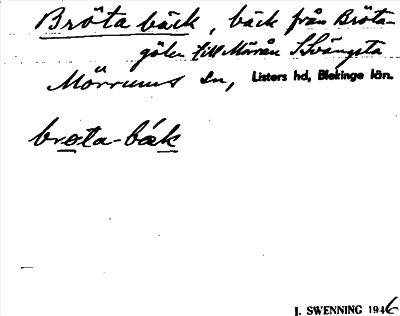 Bröta bäck, bäck från Bröta-
gölen till Mörrån S Svängsta
Mörrums sn, Listers hd, Blekinge län.
brota-bák
J. SWENNING 1946